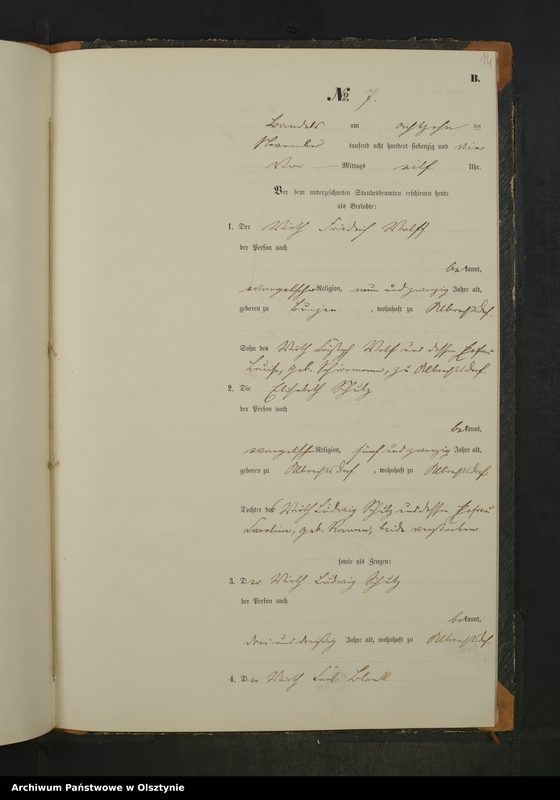 14
B.
№ 7.
Bandels am achtzehn ten
November tausend acht hundert siebenzig und vier
Vor Mittags eilf Uhr.
Vor dem unterzeichneten Standesbeamten erschienen heute
als Verlobte:
1. Der Wirth Friedrich Wolff
der Person nach
bekannt,
evangelischer Religion, neun und zwanzig Jahre alt,
geboren zu , wohnhaft zu Albrechtsdorf.
Sohn des Wirth Wolf und dessen Ehefrau
Louise, geb. Schirrmann, zu Albrechtsdorf
2. Die Elisabeth Schulz
der Person nach
bekannt,
evangelischer Religion, fünf und zwanzig Jahre alt,
geboren zu Albrechtsdorf , wohnhaft zu Albrechtsdorf
Tochter des Wirth Ludwig Schulz und dessen Ehefrau
Caroline, geb. , beide verstorben
sowie als Zeugen:
3. Der Wirth Ludwig Schulz
der Person nach
bekannt,
drei und dreißig Jahre alt, wohnhaft zu Albrechtsdorf
4. Der Wirth Carl Blank
Archiwum Państwowe w Olsztynie